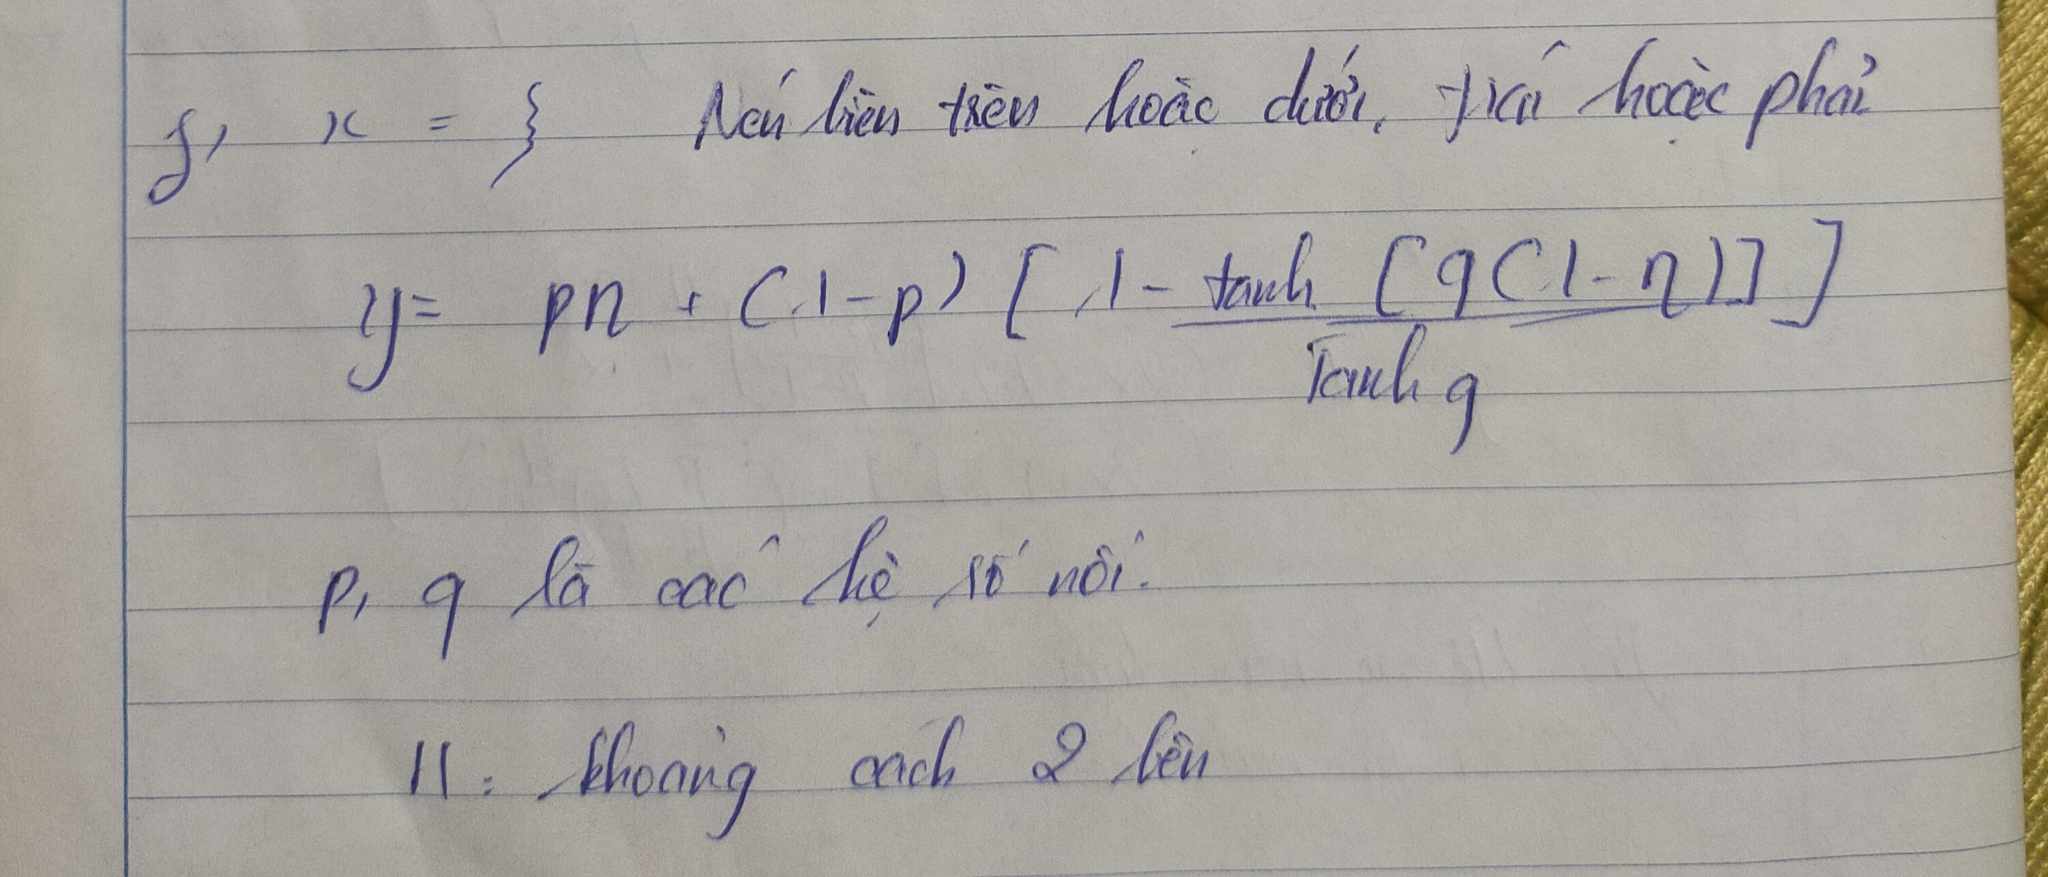 f, x = ξ Nếu biên trên hoặc dưới, trái hoặc phải
y = pη + (1-p) [ 1 - tanh [q(1-η)] / Tanh q ]
p, q là các hệ số nối.
H: khoảng cách 2 bên